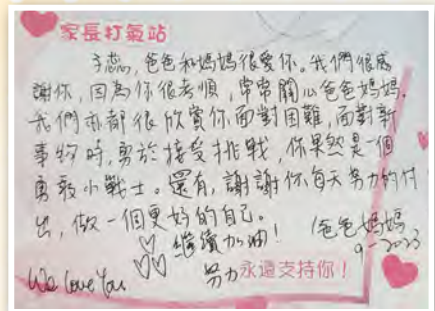 家長打氣站
子蕊，爸爸和媽媽很愛你。我們很感
謝你，因為你很孝順，常常關心爸爸媽媽。
我們亦都很欣賞你面對困難，面對新
事物時，勇於接受挑戰，你果然是一個
勇敢小戰士。還有，謝謝你每天努力的付
出，做一個更好的自己。
繼續加油！ 爸爸媽媽
9-2023
We Love You 努力永遠支持你！